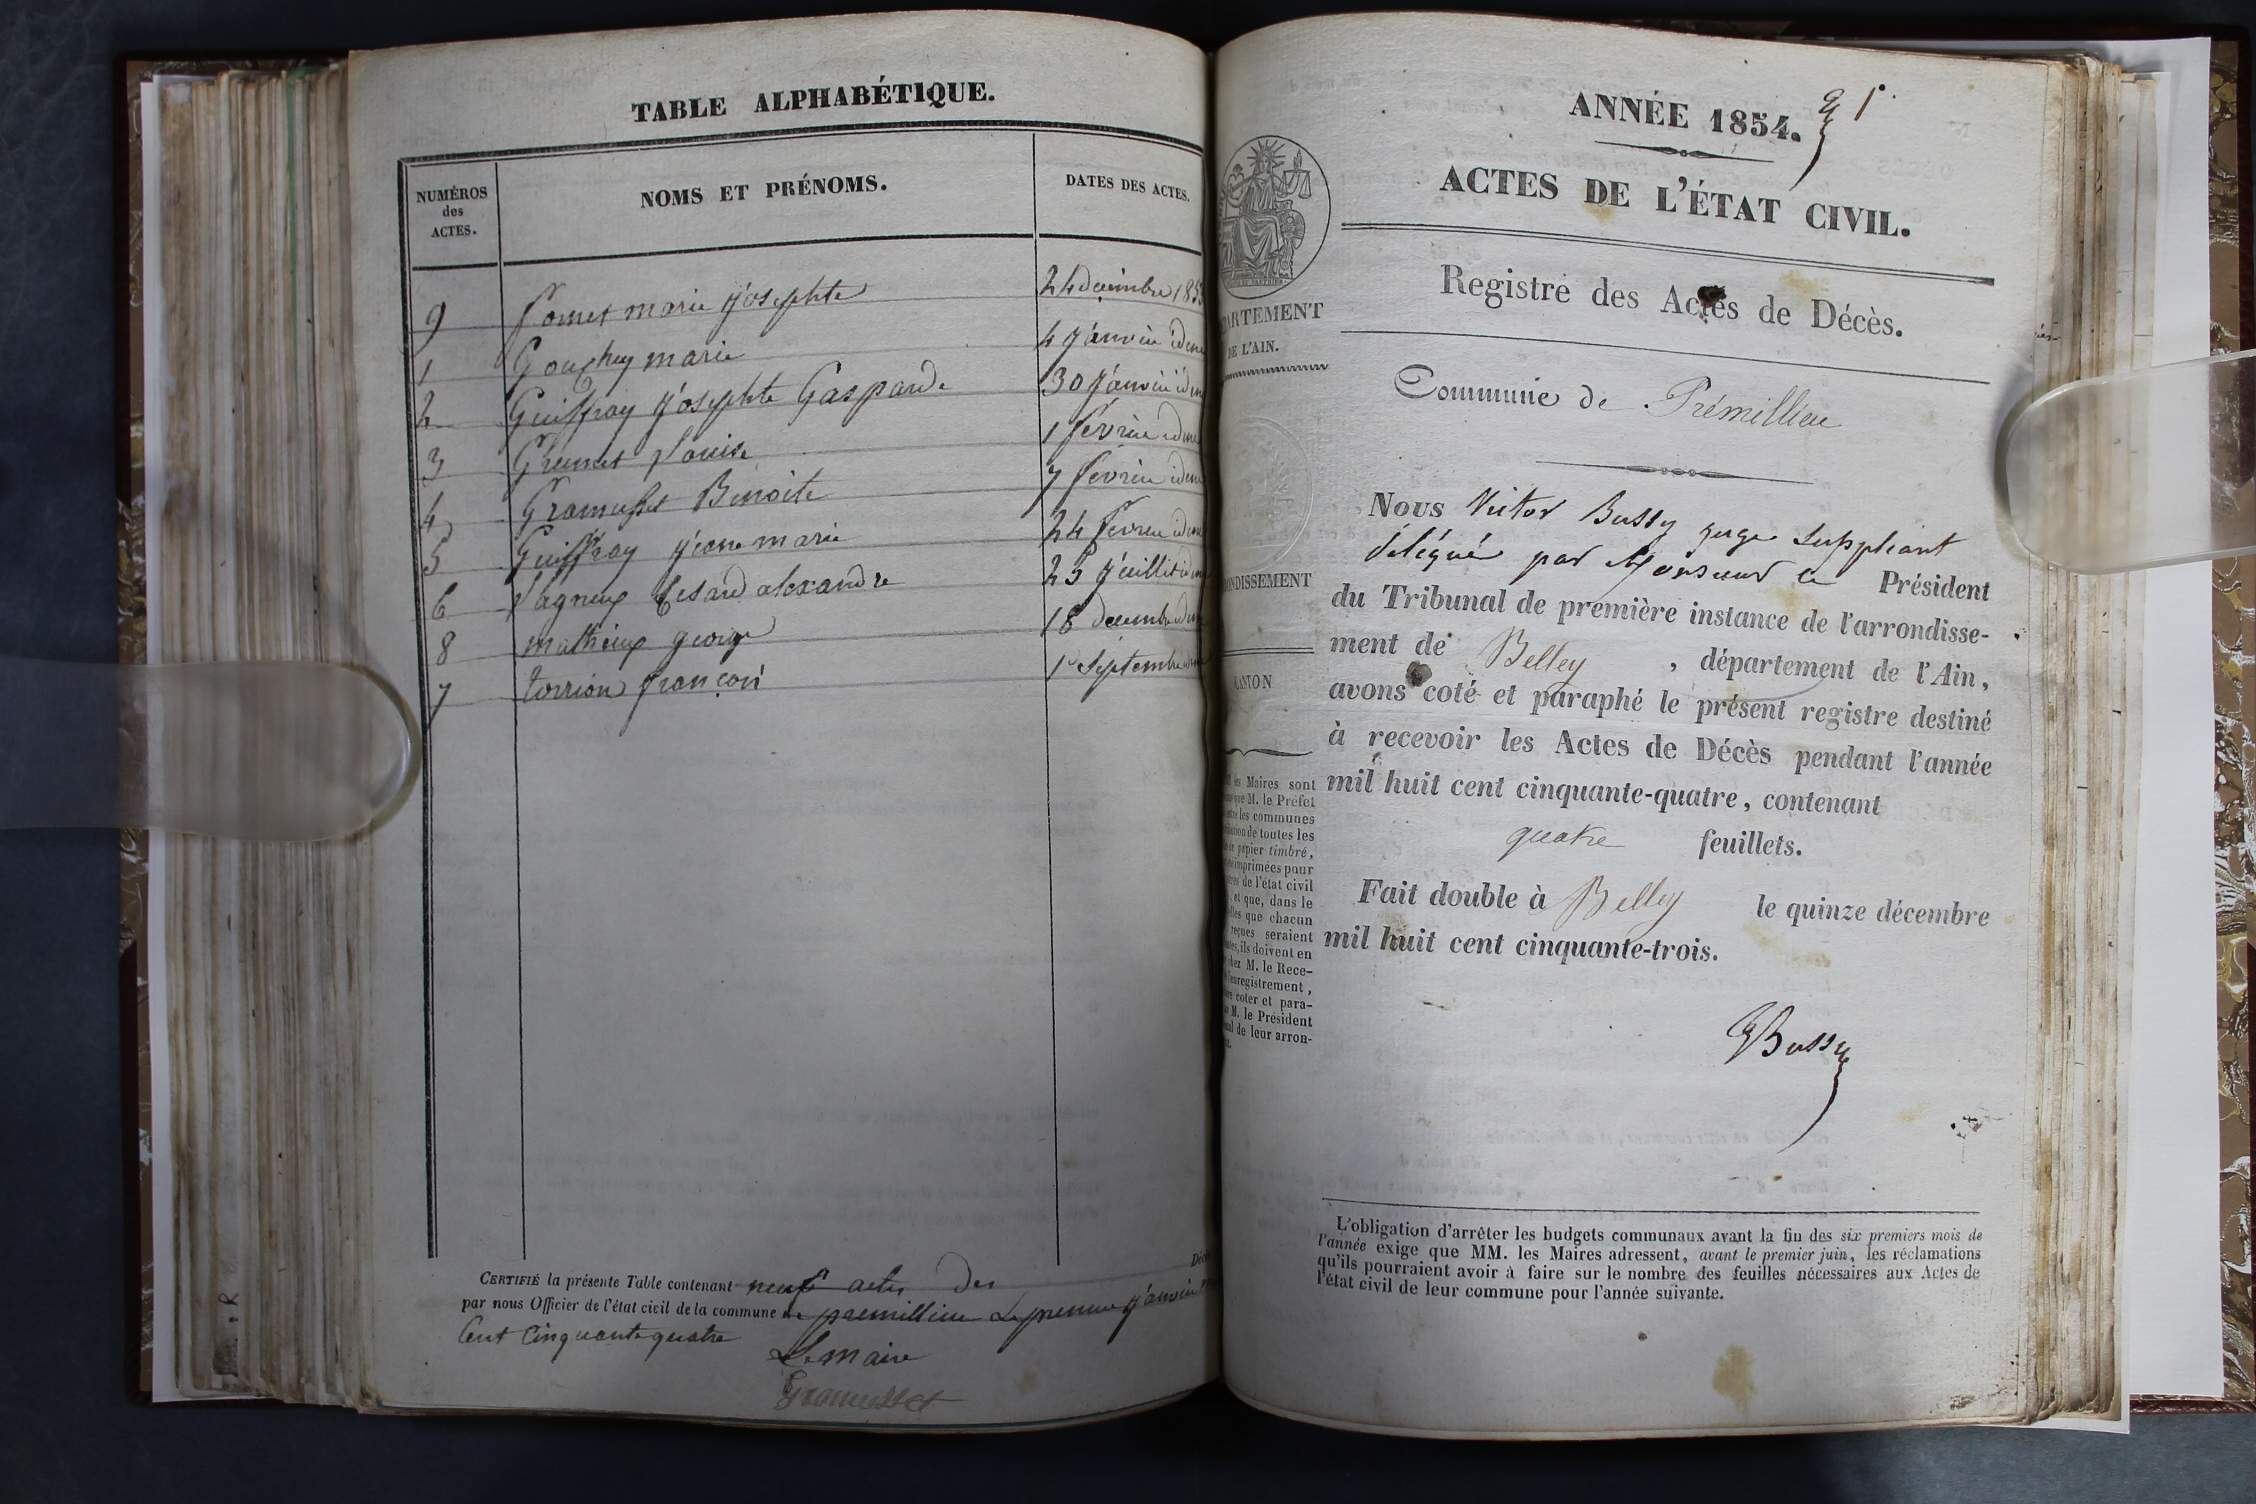 TABLE ALPHABÉTIQUE.
NUMÉROS
des
ACTES.
NOMS ET PRÉNOMS.
DATES DES ACTES.
9 marie josephte 24 décembre 185
1 Gouchey marie 4 janvier idem
2 Guiffray josephte Gasparde 30 janvier idem
3 Louise 1 février idem
4 Gramusset Benoite 7 février idem
5 Guiffray jeane marie 24 fevrier idem
6 alexandre 25 juillet idem
8 mathieux george 18 decembre idem
7 torrion françois 1er Septembre idem
CERTIFIÉ la présente Table contenant neuf actes des
par nous Officier de l'état civil de la commune de premillieu Le premier janvier
Cent Cinquante quatre
Le maire
Gramusset
1er
ANNÉE 1854.
ACTES DE L'ÉTAT CIVIL.
Registre des Actes de Décès.
Commune de Prémillieu
Nous Victor Bussy juge Suppléant
délégué par Monsieur le Président
du Tribunal de première instance de l'arrondisse-
ment de Belley, département de l'Ain,
avons coté et paraphé le présent registre destiné
à recevoir les Actes de Décès pendant l'année
mil huit cent cinquante-quatre, contenant
quatre feuillets.
Fait double à Belley le quinze décembre
mil huit cent cinquante-trois.
VBussy
L'obligation d'arrêter les budgets communaux avant la fin des six premiers mois de
l'année exige que MM. les Maires adressent, avant le premier juin, les réclamations
qu'ils pourraient avoir à faire sur le nombre des feuilles nécessaires aux Actes de
l'état civil de leur commune pour l'année suivante.
ARTEMENT
DE L'AIN.
ONDISSEMENT
CANTON
es Maires sont
que M. le Préfet
les communes
de toutes les
papier timbré,
imprimées pour
de l'état civil
et que, dans le
que chacun
reçues seraient
ils doivent en
chez M. le Rece-
enregistrement,
coter et para-
M. le Président
de leur arron-